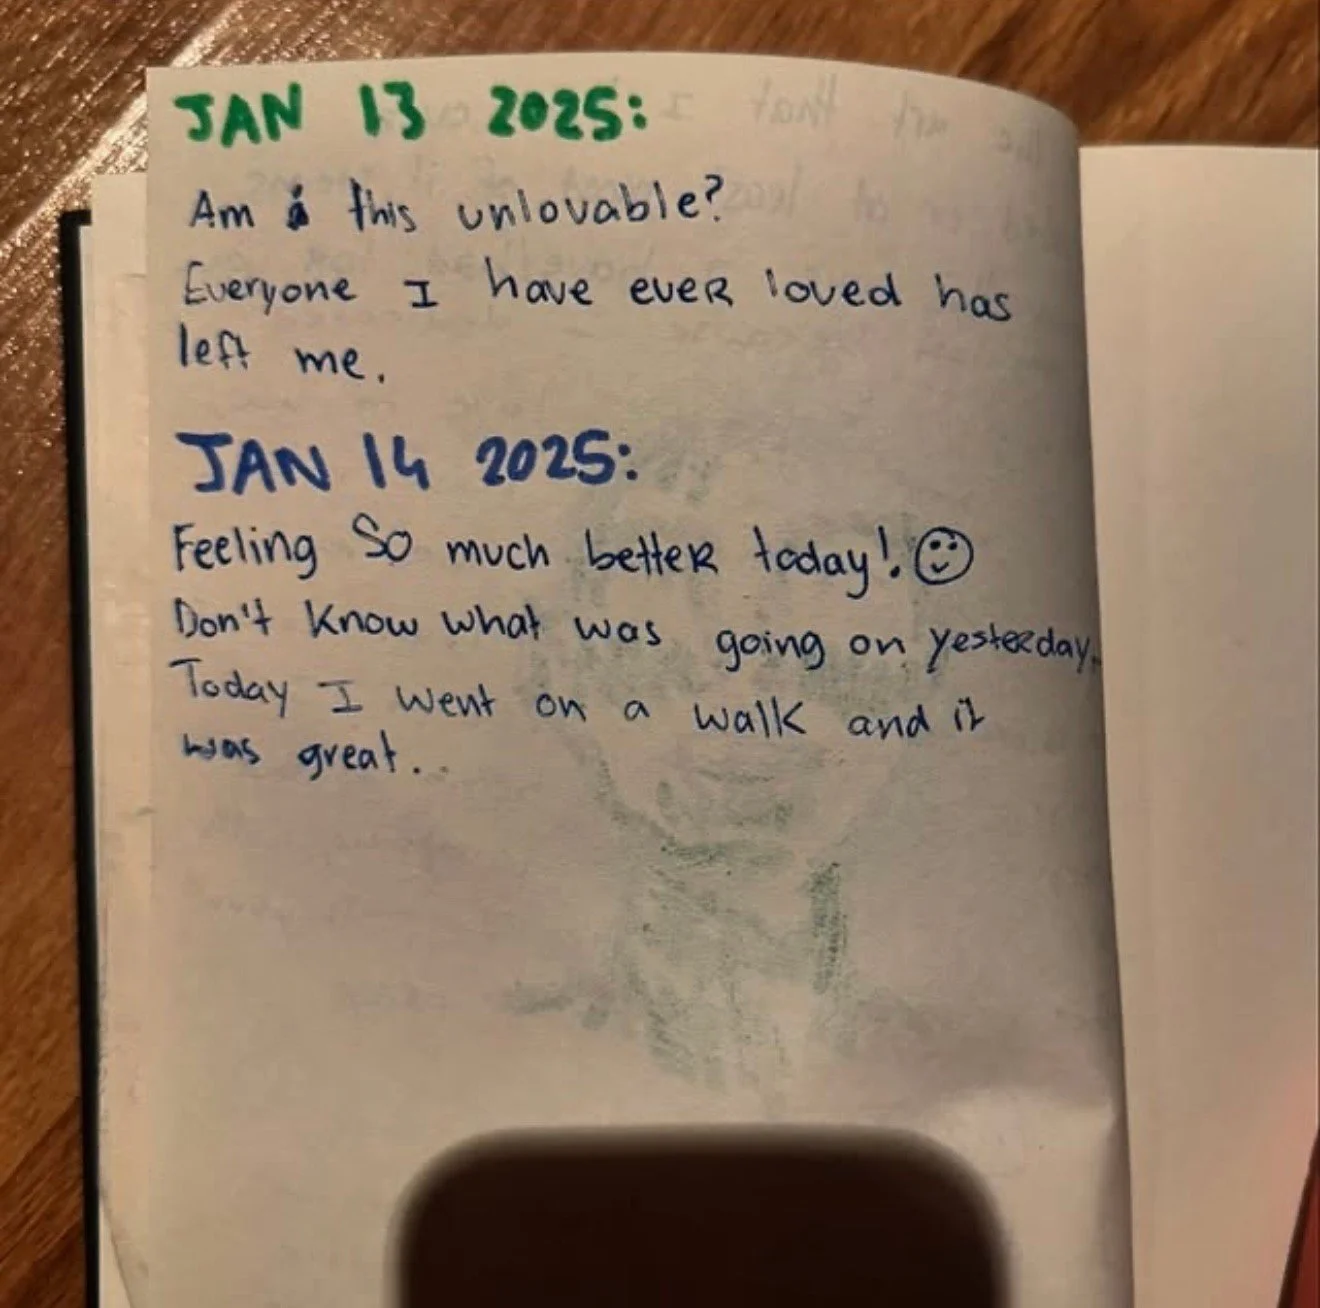 JAN 13 2025:
Am i this unlovable?
Everyone I have ever loved has
left me.
JAN 14 2025:
Feeling So much better today!
Don't know what was going on yesterday.
Today I went on a walk and it
was great..